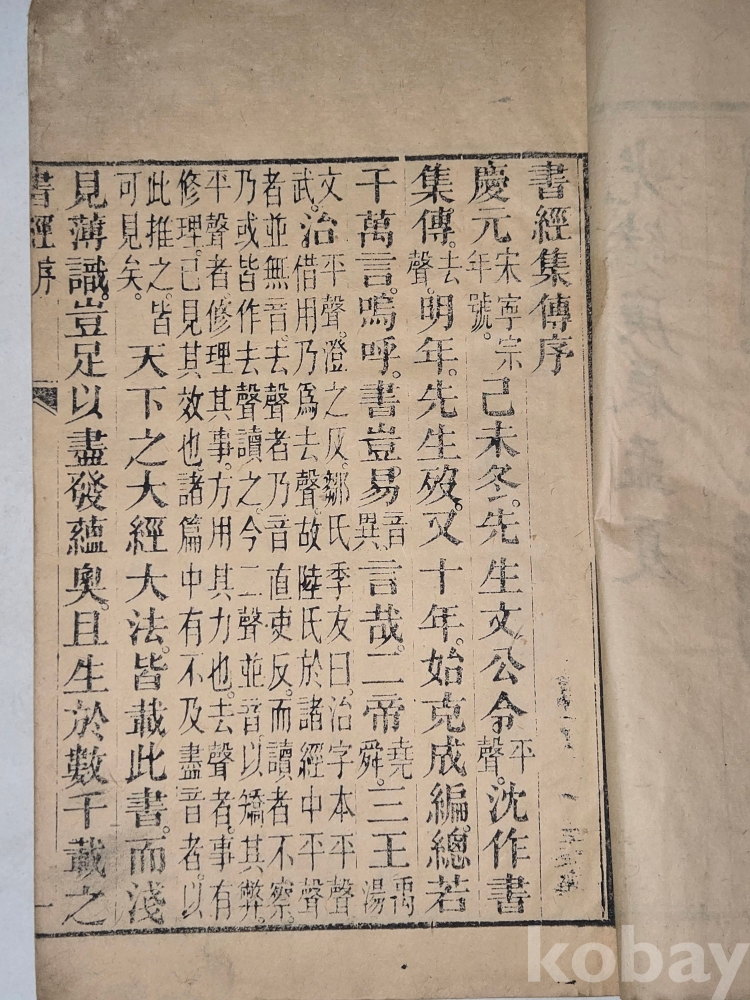 書經集傳序
慶元宋寧宗年號。己未冬。先生文公令平聲。沈作書
集傳。去聲明年。先生歿。又十年。始克成編。總若
干萬言。嗚呼。書豈易音異言哉。二帝堯舜。三王禹湯
文武。治平聲。澄之反。鄒氏季友曰。治字本平聲
借用乃爲去聲。故陸氏於諸經中平聲
者並無音。去聲者乃音直吏反。而讀者不察。
乃或皆作去聲讀之。今二聲並音。以矯其弊。
平聲者。修理其事。方用其力也。去聲者。事有
修理。已見其效也。諸篇中有不及盡音者。以
此推之。皆可見矣。天下之大經大法。皆載此書。而淺
見薄識。豈足以盡發蘊奧。且生於數千載之
書經序 一
kobay